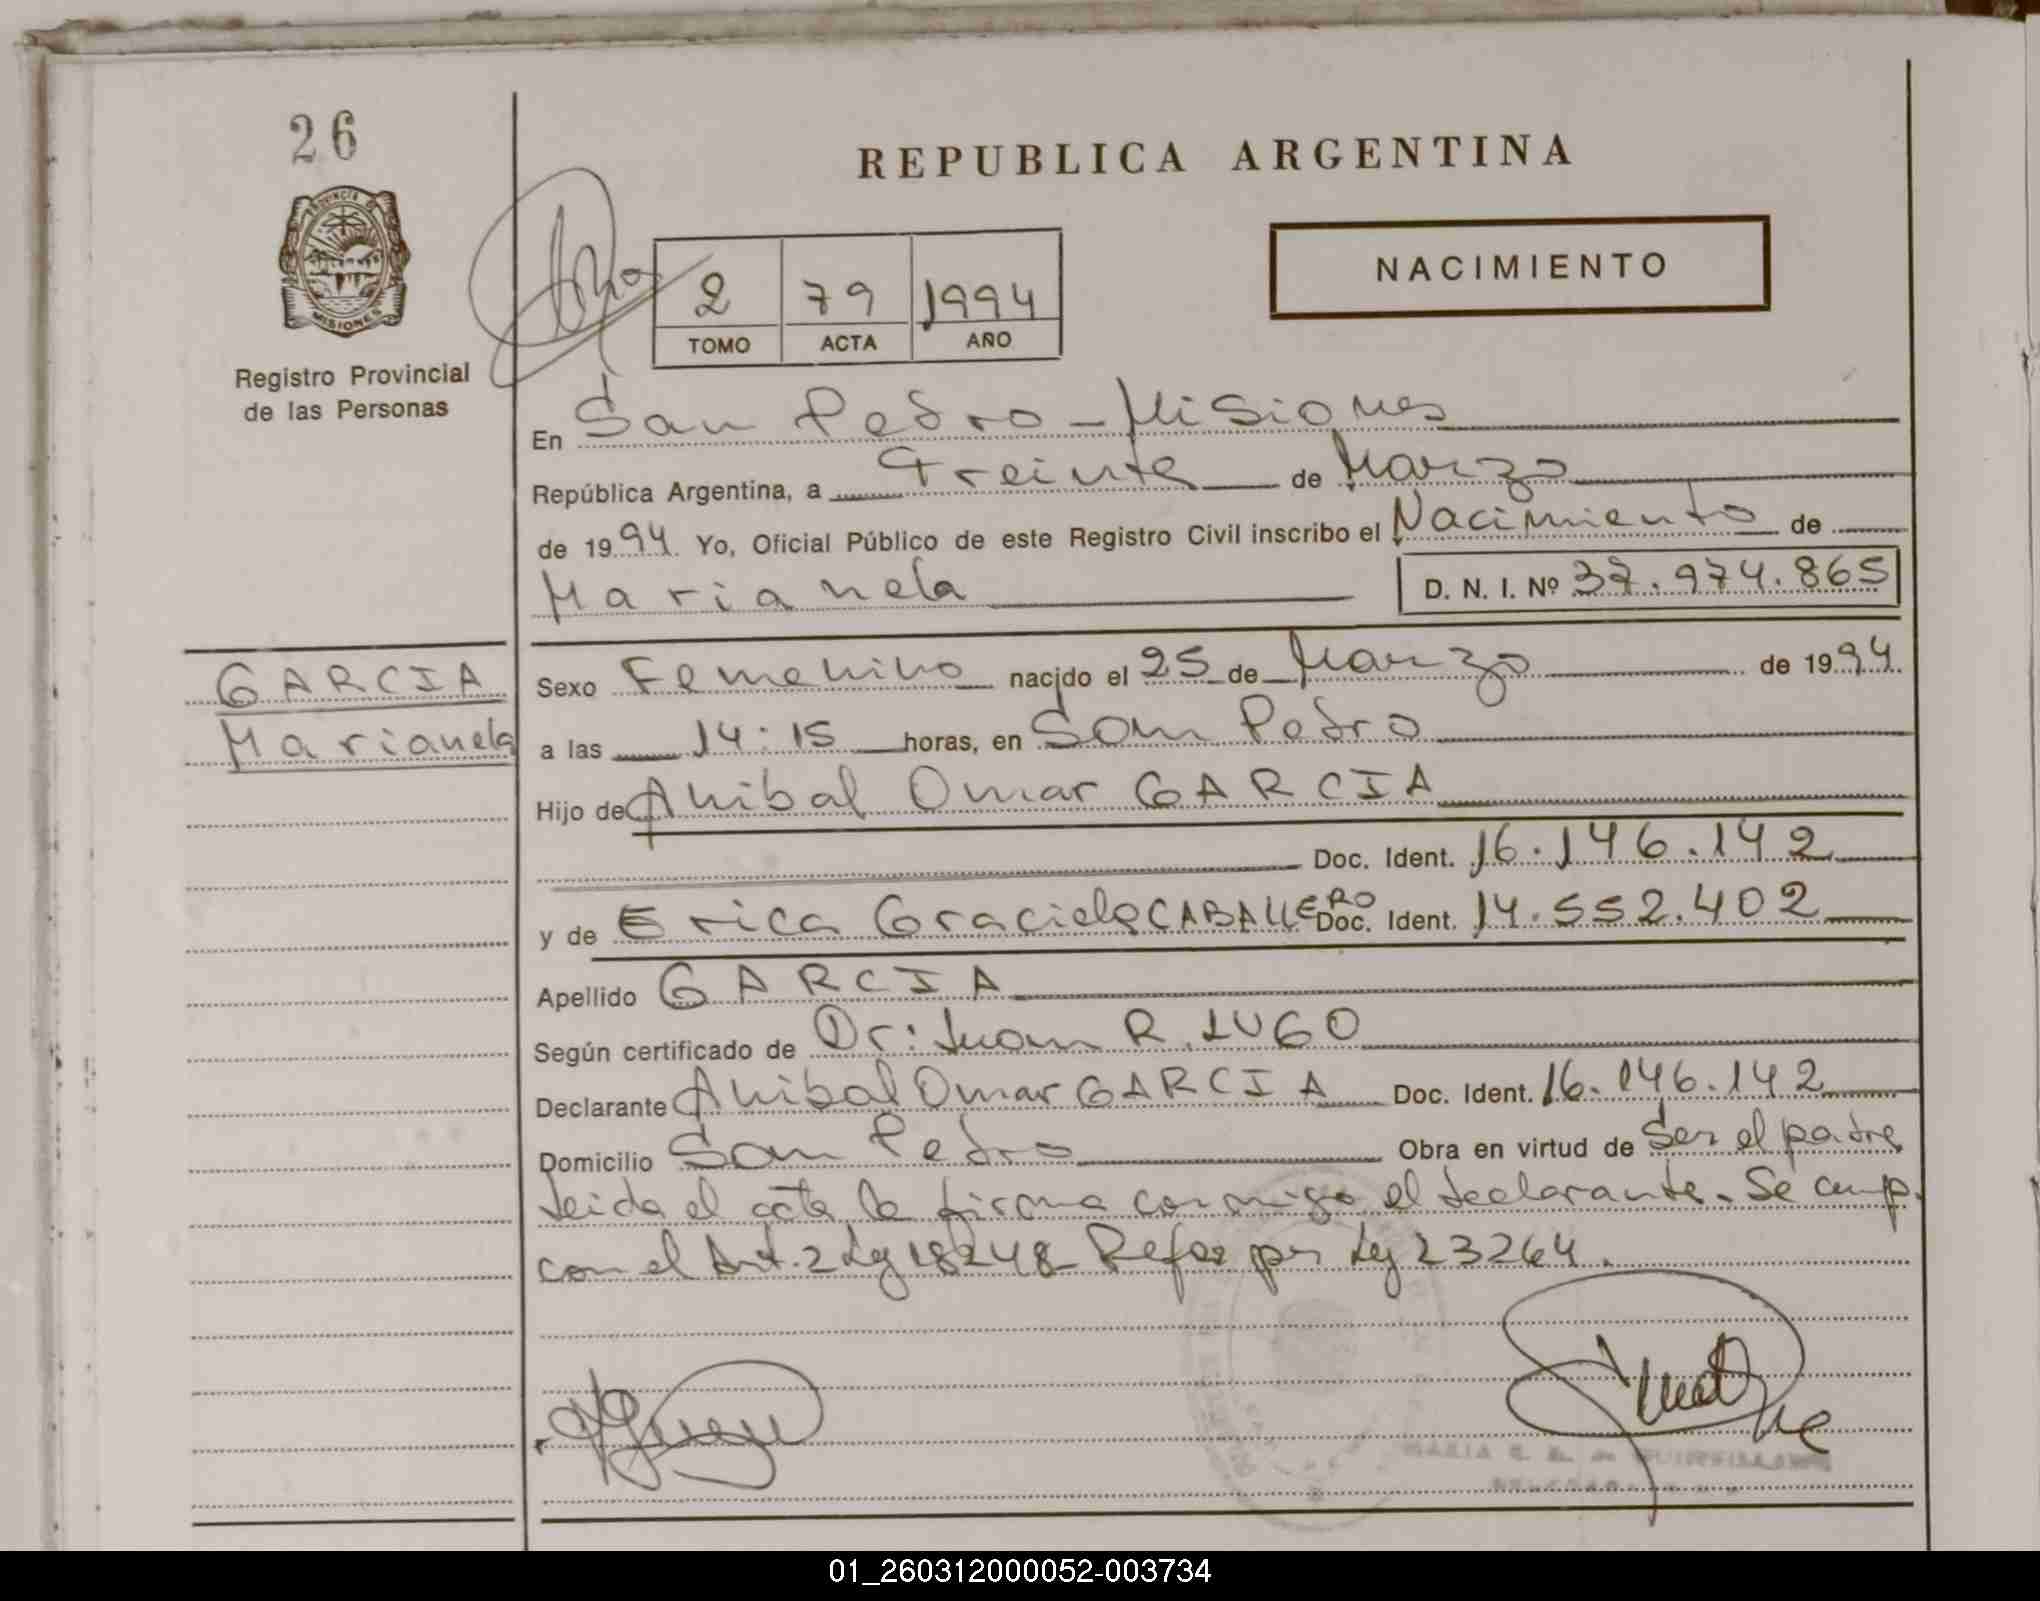 26
PROVINCIA DE
MISIONES
Registro Provincial
de las Personas
REPUBLICA ARGENTINA
2 79 1994
TOMO ACTA AÑO
NACIMIENTO
En San Pedro - Misiones
República Argentina, a Treinta de Marzo
de 1994 Yo, Oficial Público de este Registro Civil inscribo el Nacimiento de
Marianela D. N. I. Nº 37.974.865
GARCIA
Marianela
Sexo Femenino nacido el 25 de Marzo de 1994
a las 14:15 horas, en San Pedro
Hijo de Anibal Omar GARCIA
Doc. Ident. 16.146.142
y de Erica Graciela CABALLERO Doc. Ident. 14.552.402
Apellido GARCIA
Según certificado de Dr: Juan R. LUGO
Declarante Anibal Omar GARCIA Doc. Ident. 16.146.142
Domicilio San Pedro Obra en virtud de Ser el padre
Leida el acta la firma conmigo el declarante. Se cump.
con el Art. 2 Ley 18248 Refor por Ley 23264.
01_260312000052-003734